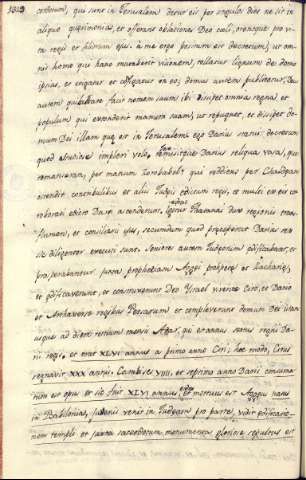 cerdotum, qui sunt in Jerusalem detur eis per singulos dies ne sit in
aliquo querimonia, et offerant oblationes Deo coeli, orentque pro vi-
ta regis et filiorum eius: à me ergo positum est decretum, ut om-
nis homo qui hanc mutaverit iussionem, tollatur lignum de domo
ipsius, et erigatur et configatur in eo; domus autem publicetur; Deus
autem qui habitare facit nomen suum ibi dissipet omnia regna, et
populum qui extenderit manum suam, ut repugnet, et dissipet do-
mum Dei illam quae est in Jerusalem. ego Darius statui decretum
quod studiose impleri volo. Darius reliqua vasa, quae
remanserant, per manum Zorobabel qui rediens per Chaldaeam
ostendit contribulibus et aliis Judaeis edictum regis, et multi ex eis
cum ascenderunt, Thatanai dux regionis trans
flumen, et consiliarii eius, secundum quod praeceperat Darius rex
sic diligenter executi sunt. Seniores autem Judaeorum aedificabant, et
prosperabantur iuxta prophetiam Aggaei prophetae et Zachariae,
et aedificaverunt, et construxerunt Deo Israel iubente Ciro, et Dario
et Arthaxerxe regibus Persarum et compleverunt domum Dei istam
usque ad diem tertium mensis Adar, qui est annus sextus regni Da-
rii regis, et erat XLVI annus a primo anno Ciri, hoc modo, Cirus
regnavit XXX annis Cambises VIII, et septimo anno Darii consuma-
tum est opus et sic fuit XLVI annus, et mortuus est Aggaeus natus
in Babilonia, iuvenis venit in Judaeam pro parte, vidit aedificatio-
nem templi et iuxta sacerdotum monumentum gloriose sepultus est